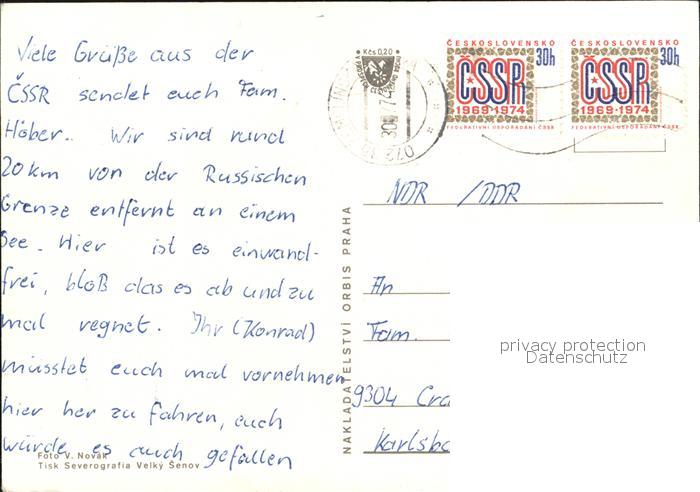 Viele Grüße aus der
ČSSR sendet euch Fam.
Höber. Wir sind rund
20 km von der Russischen
Grenze entfernt an einem
See. Hier ist es einwand-
frei, bloß das es ab und zu
mal regnet. Ihr (Konrad)
müsstet euch mal vornehmen
hier her zu fahren, euch
würde es auch gefallen
Foto V. Novák
Tisk Severografia Velký Šenov
NAKLADATELSTVÍ ORBIS PRAHA
Kčs 0,20
ČESKOSLOVENSKO
30h
ČSSR
1969-1974
FEDERATIVNÍ USPOŘÁDÁNÍ ČSSR
ČESKOSLOVENSKO
30h
ČSSR
1969-1974
FEDERATIVNÍ USPOŘÁDÁNÍ ČSSR
NDR / DDR
An
Fam.
9304 Cra
Karlsba
privacy protection
Datenschutz